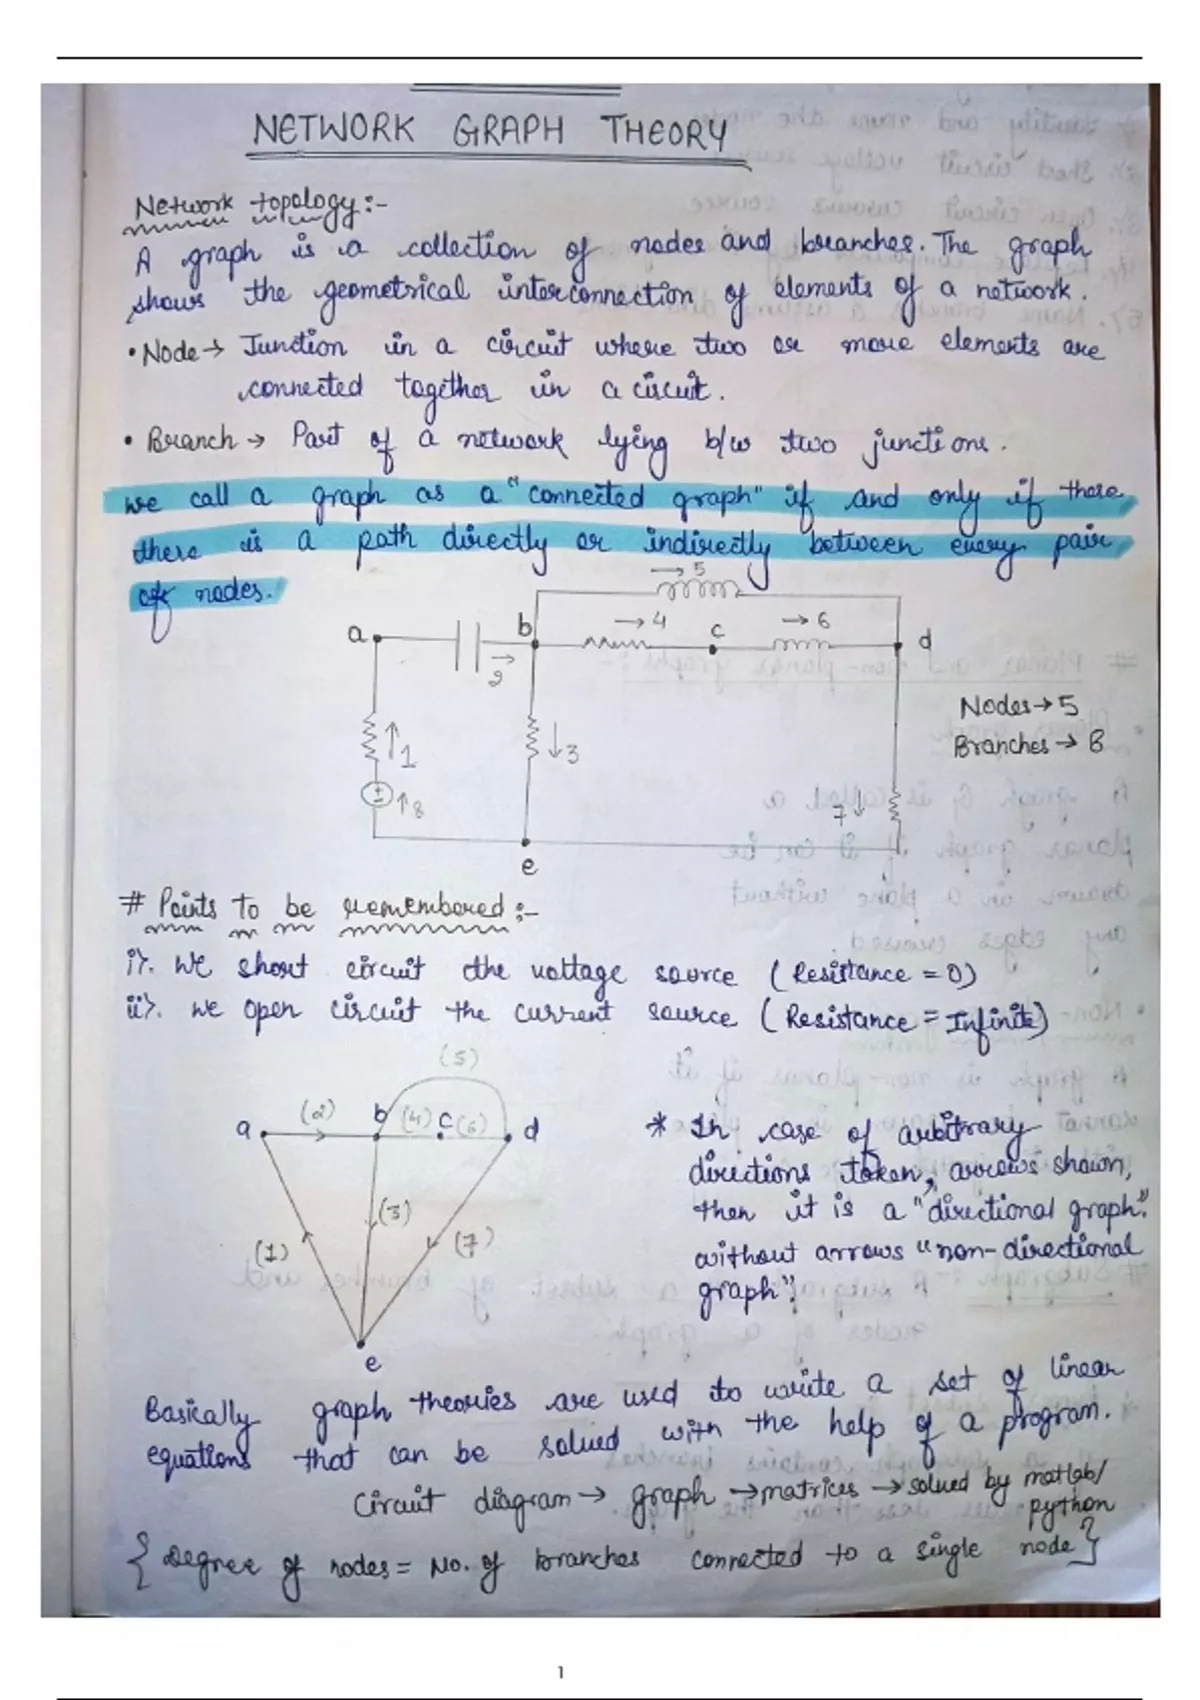 NETWORK GRAPH THEORY
Network topology :-
A graph is a collection of nodes and branches. The graph
shows the geometrical interconnection of elements of a network.
• Node → Junction in a circuit where two or more elements are
connected together in a circuit.
• Branch → Part of a network lying b/w two junctions.
we call a graph as a "connected graph" if and only if there
there is a path directly or indirectly between every pair
of nodes.
→ 5
a b → 4 c → 6 d
→ 2
Nodes → 5
Branches → 8
↑ 1 ↓ 3
± ↑ 8 7 ↓
e
# Points to be remembered :-
i). We short circuit the voltage source (Resistance = 0)
ii). We open circuit the current source (Resistance = Infinite)
(5)
a (2) b (4) c (6) d
(1) (3) (7)
e
* In case of arbitrary
directions taken, arrows shown,
then it is a "directional graph".
without arrows "non-directional
graph".
Basically graph theories are used to write a set of linear
equations that can be solved with the help of a program.
Circuit diagram → graph → matrices → solved by matlab/
python
{ Degree of nodes = No. of branches connected to a single node }
1